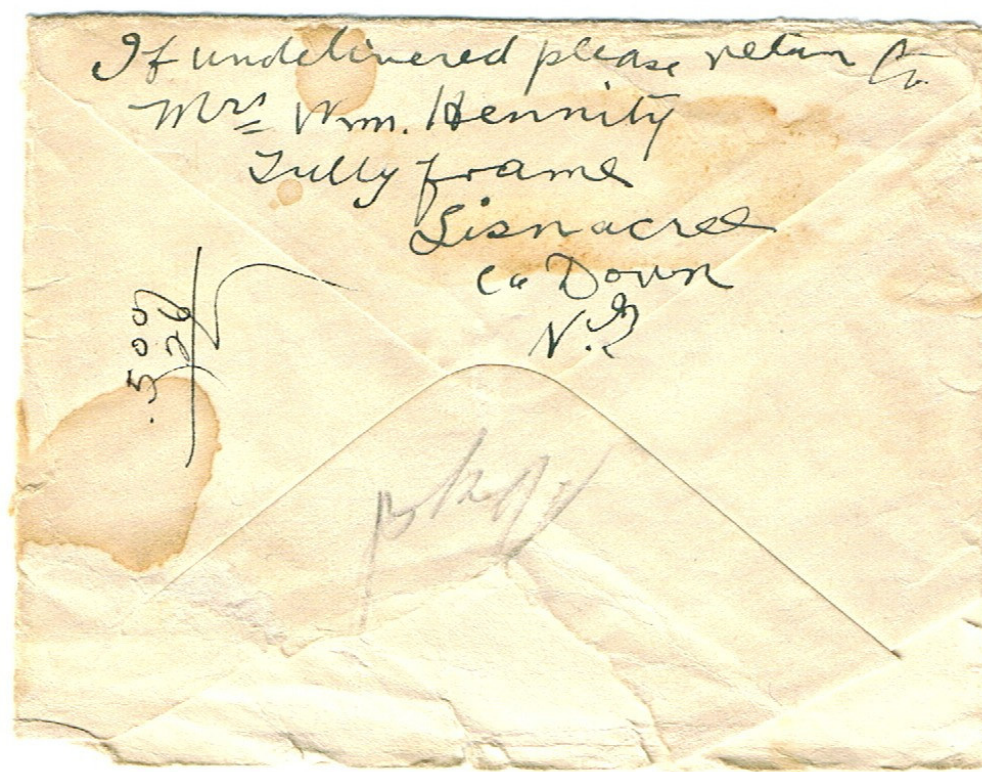 If undelivered please return to
Mrs Wm. Hennity
Tullyframe
Lisnacree
Co Down
N.I
.500